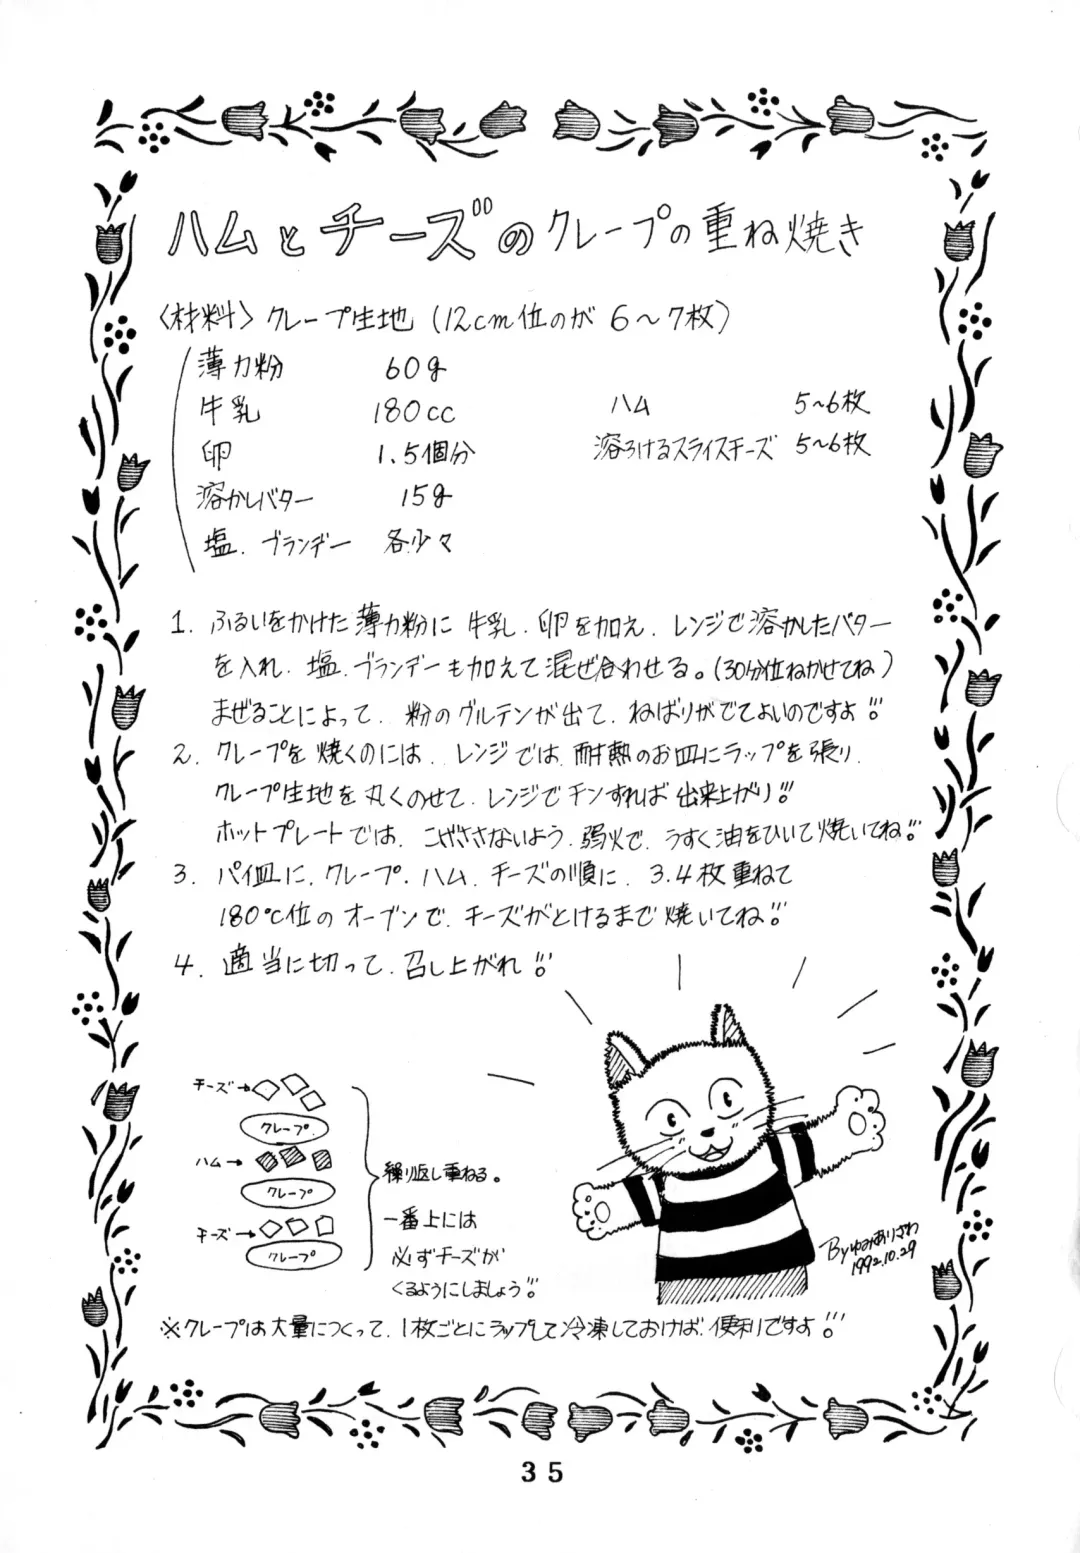 ハムとチーズのクレープの重ね焼き
〈材料〉クレープ生地(12cm位のが6〜7枚)
薄力粉 60g
牛乳 180cc
卵 1.5個分
溶かしバター 15g
塩.ブランデー 各少々
ハム 5~6枚
溶ろけるスライスチーズ 5~6枚
1. ふるいをかけた薄力粉に牛乳.卵を加え.レンジで溶かしたバター
を入れ.塩.ブランデーも加えて混ぜ合わせる。(30分位ねかせてね)
まぜることによって.粉のグルテンが出て.ねばりがでてよいのですよ!!
2. クレープを焼くのには.レンジでは.耐熱のお皿にラップを張り.
クレープ生地を丸くのせて.レンジでチンすれば出来上がり!!
ホットプレートでは.こげささないよう.弱火で.うすく油をひいて焼いてね!!
3. パイ皿に.クレープ.ハム.チーズの順に.3.4枚重ねて
180℃位のオーブンで.チーズがとけるまで焼いてね!!
4. 適当に切って.召し上がれ!!
チーズ→
クレープ
ハム→
クレープ
チーズ→
クレープ
繰り返し重ねる。
一番上には
必ずチーズが
くるようにしましょう!!
Byゆみありさわ
1992.10.29
※クレープは大量につくって.1枚ごとにラップして冷凍しておけば.便利ですよ!!
35